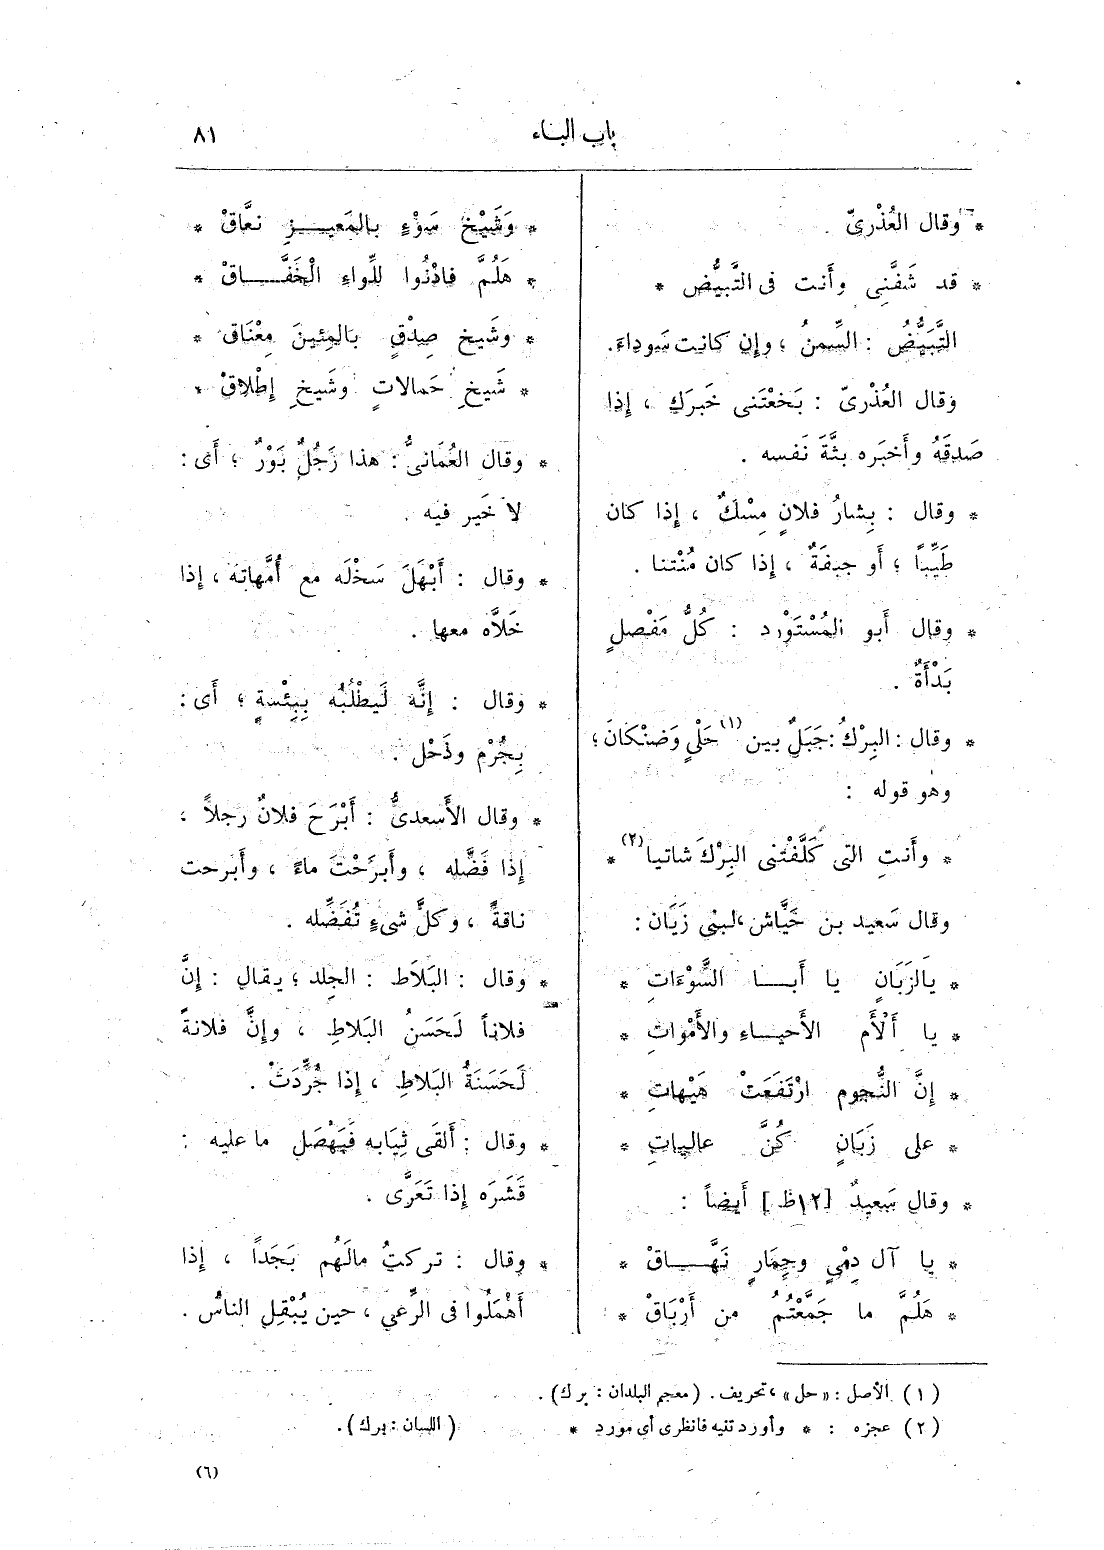 باب الباء ٨١
* وقال العُذْرىّ .
* قد شَفَّنِى وأَنت فى التَّبيُّض *
التَّبَيُّضُ : السِّمنُ ؛ وإن كانت سَوداءَ.
وقال العُذْرىّ : بَخعْتَنى خَبرَكِ ، إِذا
صَدقَهُ وأَخبَره بثَّةَ نَفسه .
* وقال : بِشارُ فلانٍ مِسْكٌ ، إِذا كان
طَيِّباً ؛ أَو جيفَةٌ ، إِذا كان مُنْتنا .
* وقال أَبو المُسْتَوْرد : كُلُّ مَفْصلٍ
بَدْأَةٌ .
* وقال : البِرْكُ : جَبَلٌ بين (١) حَلْىٍ وَضنْكانَ ؛
وهو قوله :
* وأَنتِ التى كَلَّفْتنى البِرْكَ شاتيا (٢) *
وقال سَعيد بن خَيَّاش ، لبنى زَبَان :
* يالَزَبَانٍ يا أَبــا السَّوْءَاتِ *
* يا أَلْأَم الأَحيــاءِ والأَمْوَاتِ *
* إِنَّ النُّجوم ارْتَفَعَتْ هَيْهاتِ *
* على زَبَانٍ كُنَّ عاليِاتِ *
* وقال سَعيدٌ [١٢ظ] أَيضاً :
* يا آل دِمْىٍ وحِمَارٍ نَهَّــاقْ *
* هَلُمَّ ما جَمَّعْتُمُ من أَرْبَاقْ *
* وَشَيْخ سَوْءٍ بالمَعيــزِ نعَّاقْ *
* هَلُمَّ فاذْنُوا للِّواءِ الْخَفَّــاقْ *
* وشَيخ صِدْقٍ بالمِئينَ مِعْنَاق *
* شَيخِ حَمالاتٍ وشَيخِ إِطْلاقْ *
* وقال العُمَانىُّ : هذا رَجُلٌ بَوْرٌ ؛ أَى :
لا خَير فيه .
* وقال : أَبْهَلَ سَخْلَه مع أُمَّهاتِه ، إِذا
خَلاَّه معها .
* وقال : إِنَّه لَيَطْلُبُه بِبِئْسةٍ ؛ أَى :
بِجُرْم وذَحْل .
* وقال الأَسعدىُّ : أَبْرَحَ فلانٌ رجلاً ،
إِذا فَضَّله ، وأَبرَحْتَ ماءً ، وأَبرحت
ناقةً ، وكلَّ شىءٍ تُفَضِّله .
* وقال : البَلاَط : الجِلد ؛ يقال : إِنَّ
فلاناً لَحَسَنُ البَلاطِ ، وإِنَّ فلانةً
لَحَسَنَةُ البَلاطِ ، إِذا جُرِّدَتْ .
* وقال : أَلقَى ثِيَابه فَبَهْصَلَ ما عليه :
قَشَرَه إِذا تَعَرَّى .
* وقال : تركتُ مالَهُم بَجَداً ، إِذا
أَهْمَلُوا فى الرَّعي ، حين يُبْقِلِ الناسُ .
(١) الأصل : «حل» ، تحريف . (معجم البلدان : برك) .
(٢) عجزه : * وأوردتنيه فانظرى أى مورد * (اللسان : برك) .
(٦)